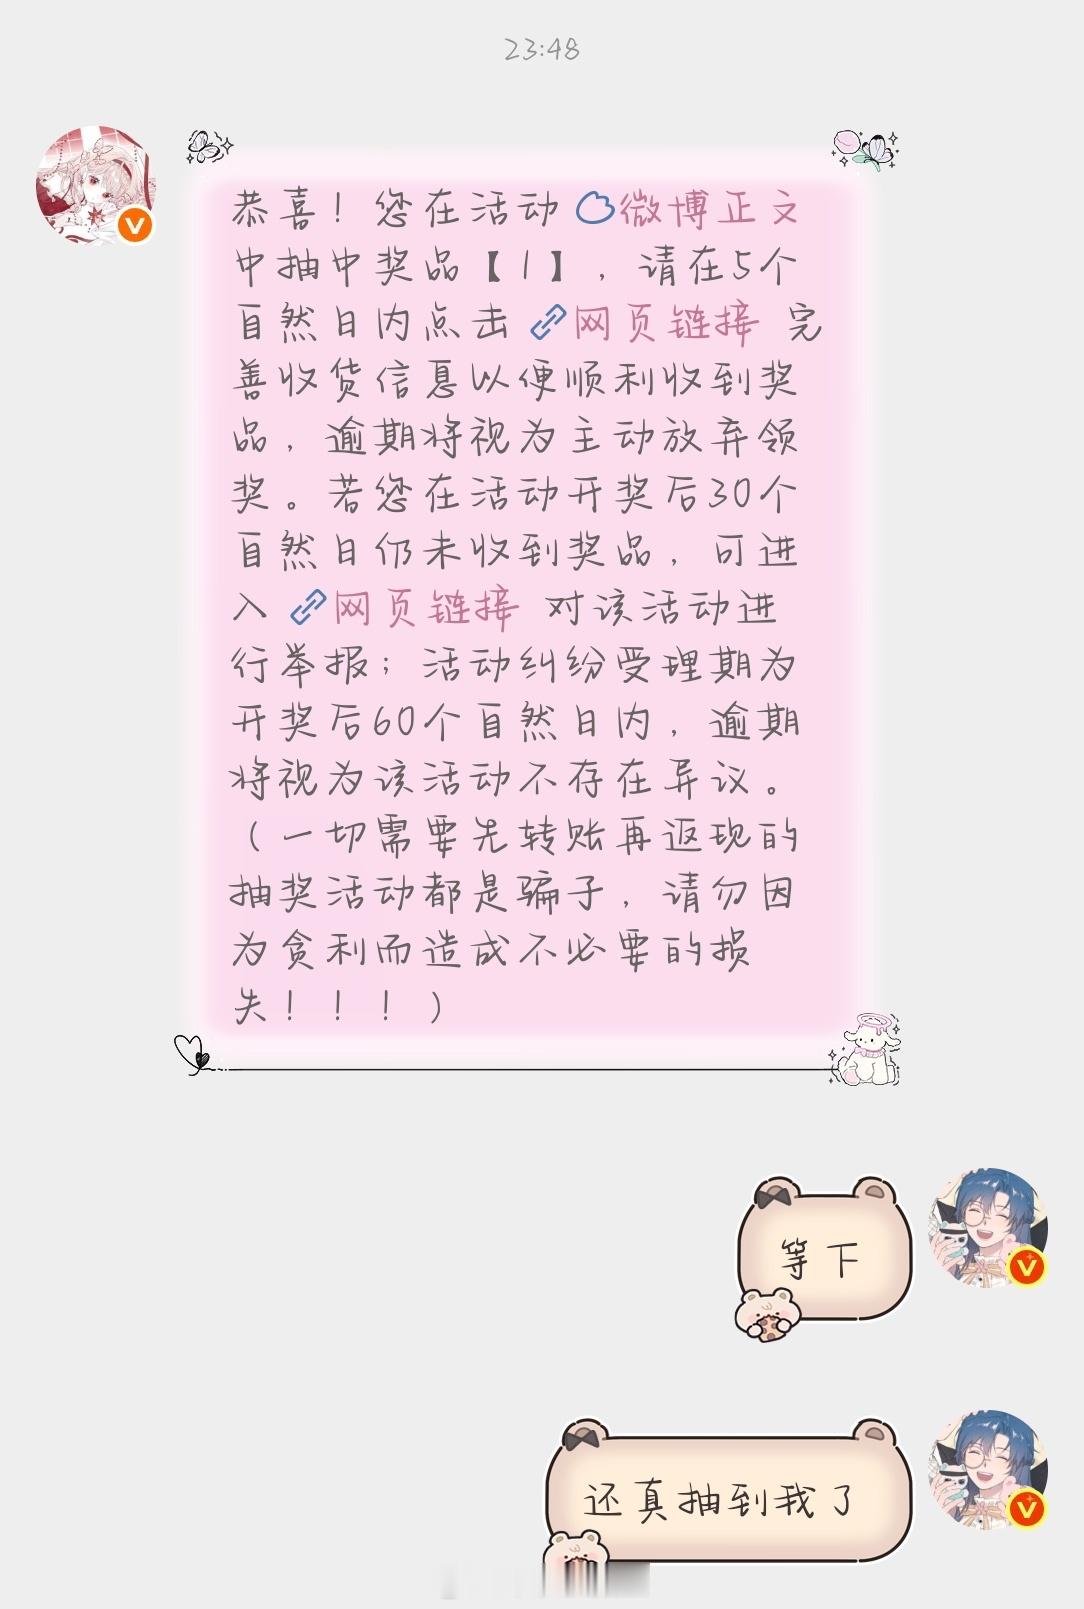 23:48
恭喜！您在活动 微博正文
中抽中奖品【1】，请在5个
自然日内点击 网页链接 完
善收货信息以便顺利收到奖
品，逾期将视为主动放弃领
奖。若您在活动开奖后30个
自然日仍未收到奖品，可进
入 网页链接 对该活动进
行举报；活动纠纷受理期为
开奖后60个自然日内，逾期
将视为该活动不存在异议。
（一切需要先转账再返现的
抽奖活动都是骗子，请勿因
为贪利而造成不必要的损
失！！！）
等下
还真抽到我了